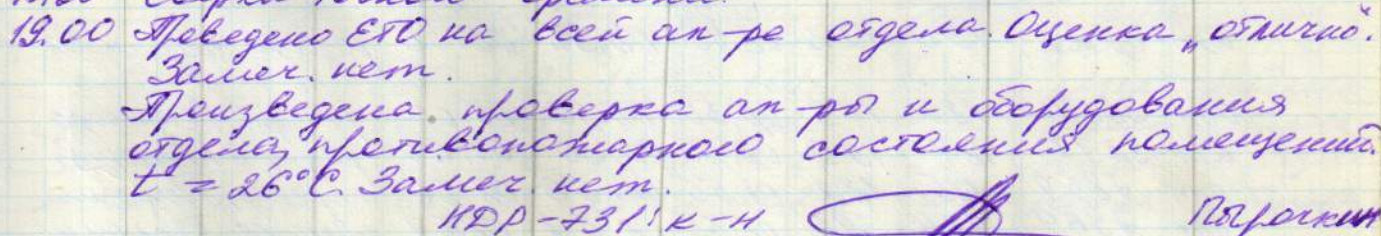 сверка точного времени.
19.00 Проведено ЕТО на всей ап-ре отдела. Оценка „отлично".
Замеч. нет.
Произведена проверка ап-ры и оборудования
отдела, противопожарного состояния помещений.
t = 26°С. Замеч. нет.
НДР-731: к-н Пырочкин